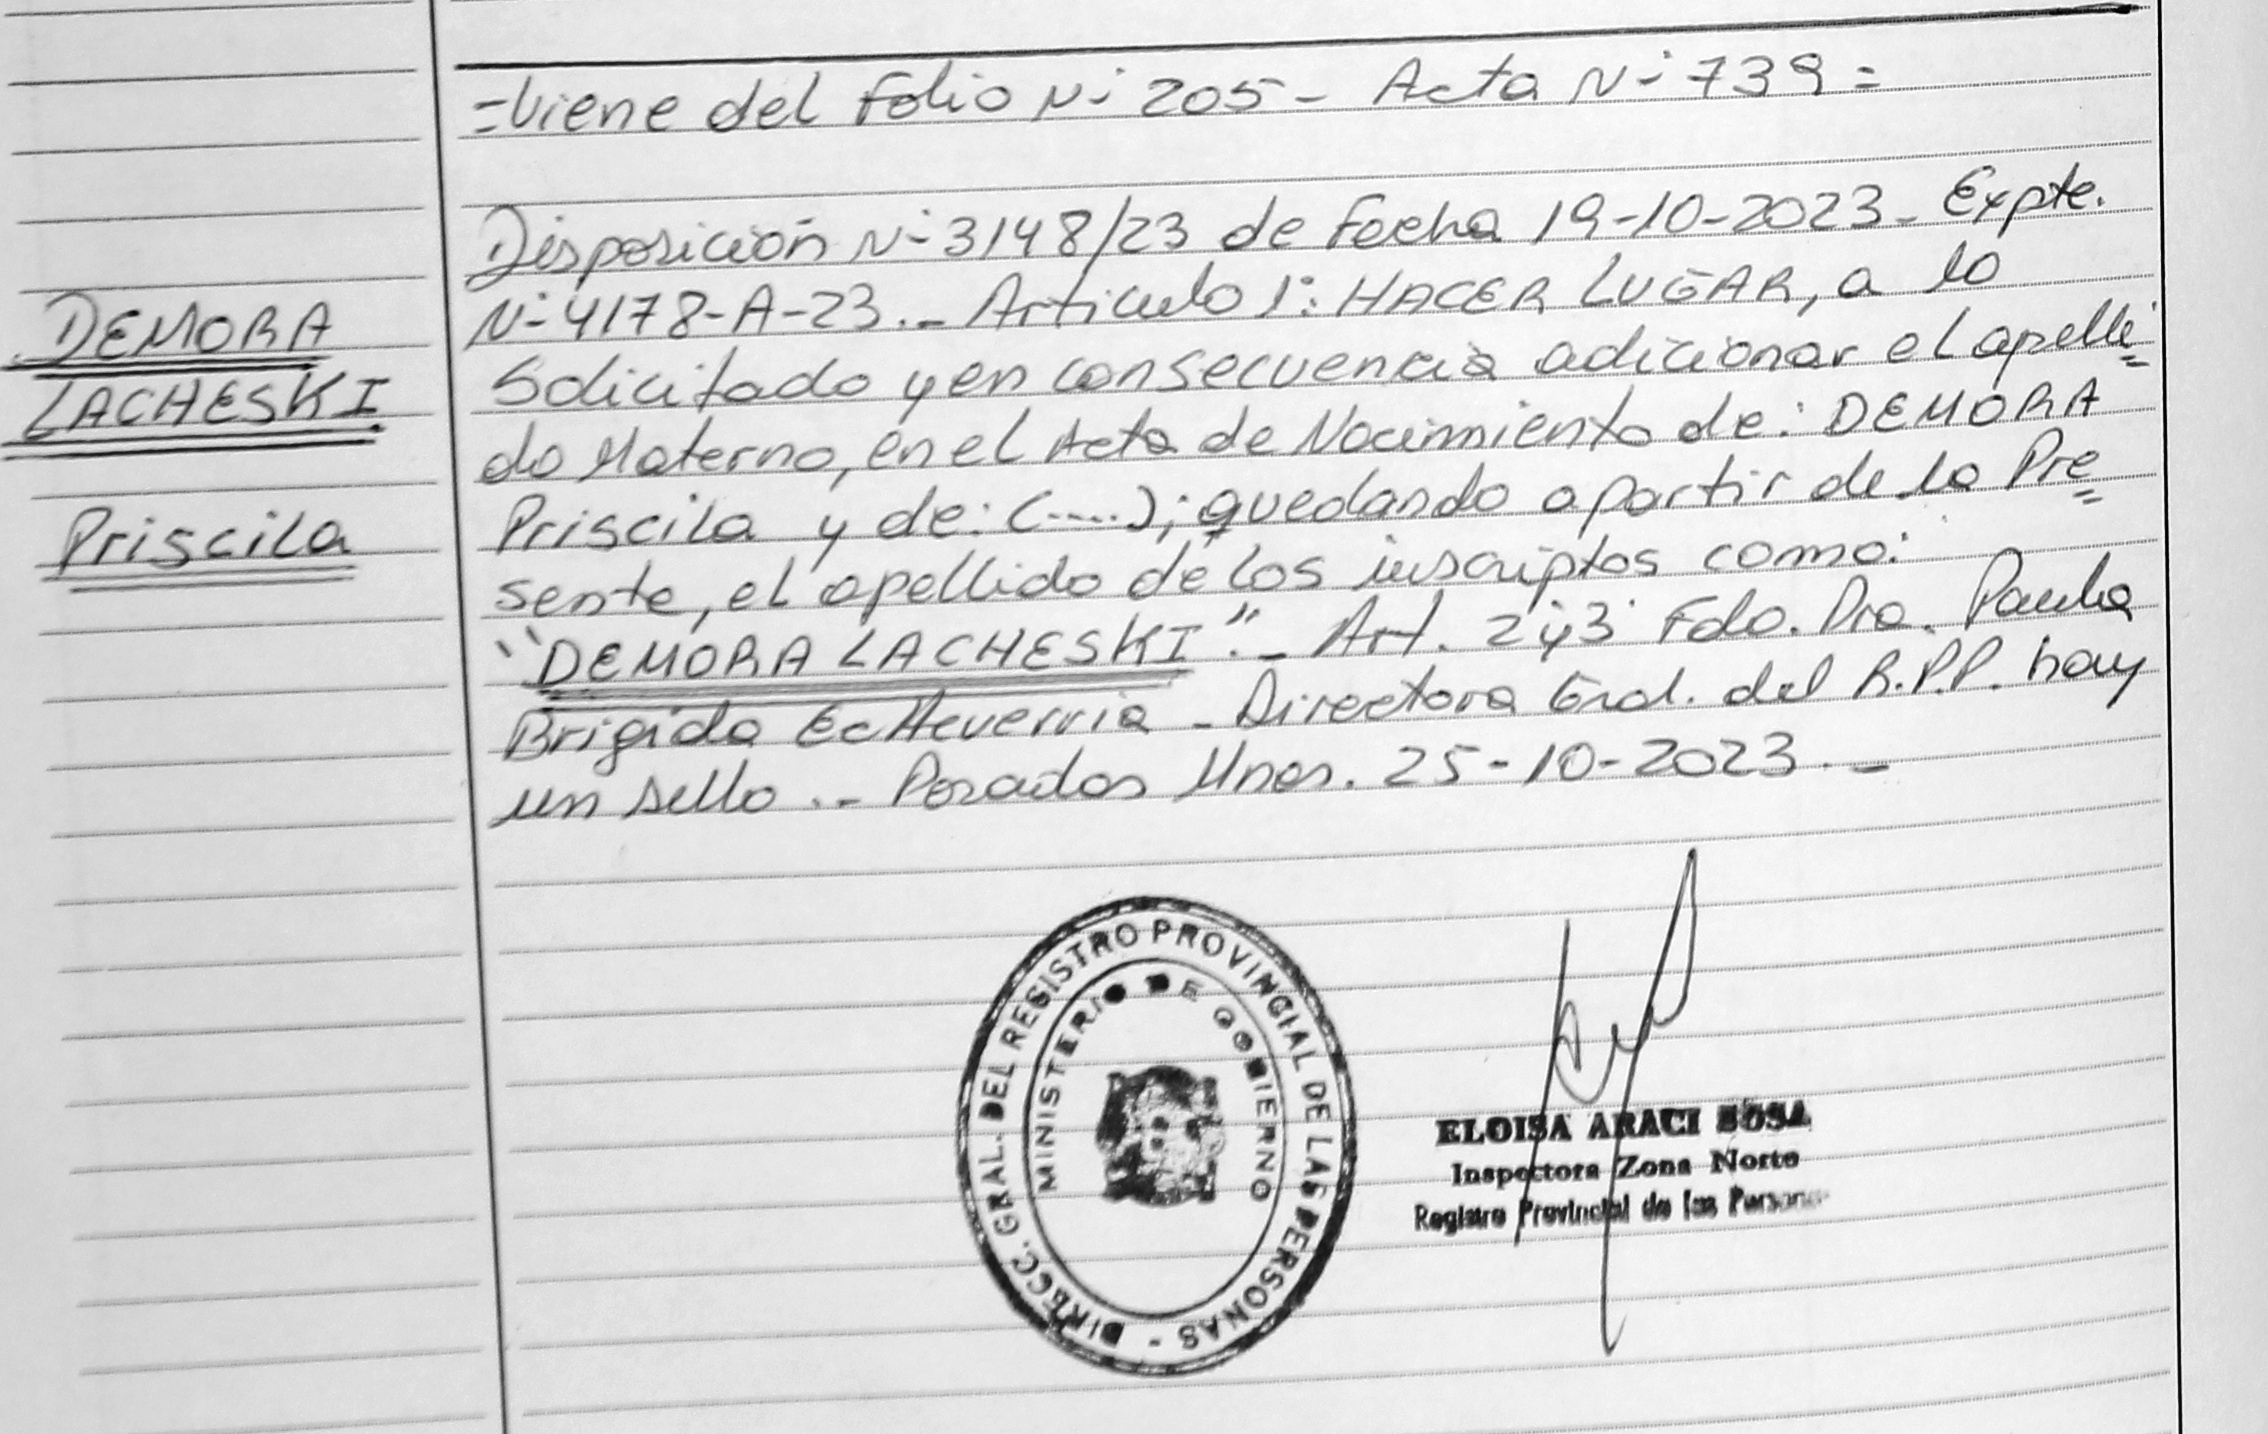 =Viene del Folio N° 205 - Acta N° 739=
Disposición N° 3148/23 de Fecha 19-10-2023- Expte.
N° 4178-A-23.- Articulo 1°: HACER LUGAR, a lo
Solicitado y en consecuencia adicionar el apelli=
do Materno, en el Acta de Nacimiento de: DEMORA
Priscila y de: (....); quedando a partir de la Pre=
sente, el apellido de los inscriptos como:
"DEMORA LACHESKI".- Art. 2° y 3° Fdo. Dra. Paula
Brigida EcHeverria - Directora Gral. del R.P.P. hay
un sello.- Posadas Mnes. 25-10-2023.-
DEMORA
LACHESKI
Priscila
DIRECC. GRAL. DEL REGISTRO PROVINCIAL DE LAS PERSONAS -
MINISTERIO DE GOBIERNO
ELOISA ARACI SOSA
Inspectora Zona Norte
Registro Provincial de las Personas